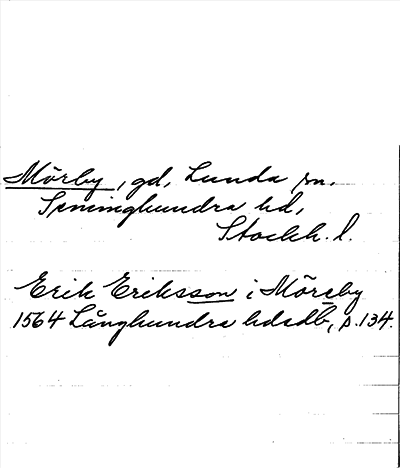 Mörby, gd, Lunda sn,
Seminghundra hd,
Stockh. l.
Erik Eriksson i Mörsby
1564 Långhundra hdsdb, s. 134.